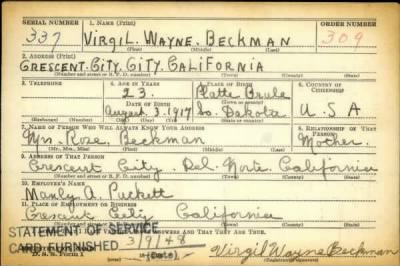 SERIAL NUMBER 1. NAME (Print) ORDER NUMBER
337 VIRGIL. WAYNE. BECKMAN 309
(First) (Middle) (Last)
2. ADDRESS (Print)
CRESCENT. CITY. CITY. CALIFORNIA
(Number and street or R. F. D. number) (Town) (County) (State)
3. TELEPHONE 4. AGE IN YEARS 5. PLACE OF BIRTH 6. COUNTRY OF CITIZENSHIP
23. Platte Brule
DATE OF BIRTH (Town or county)
August 3, 1917 So. Dakota U.S.A
(Mo.) (Day) (Yr.) (State or country)
7. NAME OF PERSON WHO WILL ALWAYS KNOW YOUR ADDRESS 8. RELATIONSHIP OF THAT PERSON
Mrs. Rose Beckman Mother.
(Mr., Mrs., Miss) (First) (Middle) (Last)
9. ADDRESS OF THAT PERSON
Crescent City. Del. Norte California
(Number and street or R. F. D. number) (Town) (County) (State)
10. EMPLOYER'S NAME
Manly A. Puckett
11. PLACE OF EMPLOYMENT OR BUSINESS
Crescent City California
STATEMENT OF SERVICE
CARD FURNISHED 3/9/48
ANSWERS AND THAT THEY ARE TRUE.
D. S. S. Form 1 (Date) Virgil Wayne Beckman
(Registrant's signature)